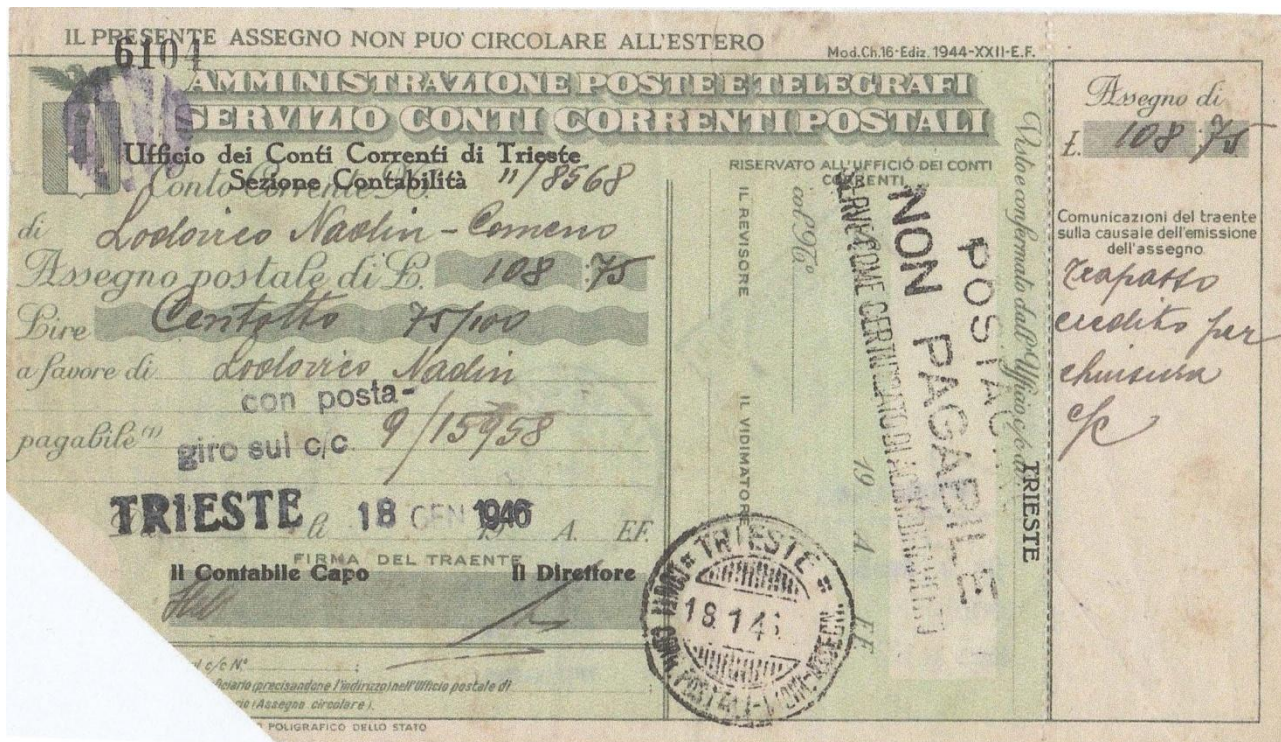 IL PRESENTE ASSEGNO NON PUO' CIRCOLARE ALL'ESTERO
Mod.Ch.16-Ediz. 1944-XXII-E.F.
6104
AMMINISTRAZIONE POSTE E TELEGRAFI
SERVIZIO CONTI CORRENTI POSTALI
Ufficio dei Conti Correnti di Trieste
Sezione Contabilità
Conto Corrente N. 11/8568
di Lodovico Nadin - Comeno
Assegno postale di £. 108:75
Lire Centotto 75/100
a favore di Lodovico Nadin
con posta-
pagabile (1) giro sul c/c. 9/15958
TRIESTE li 18 GEN 1946 19 A. E.F.
FIRMA DEL TRAENTE
Il Contabile Capo Il Direttore
al c/c N.° ;
(precisandone l'indirizzo) nell'Ufficio postale di ;
(Assegno circolare).
POLIGRAFICO DELLO STATO
RISERVATO ALL'UFFICIO DEI CONTI
CORRENTI
IL REVISORE
IL VIDIMATORE
col N°
19 A. E.F.
SERVE COME CERTIFICATO DI ACCREDITAMENTO
NON PAGABILE
Visto e confermato dall'Ufficio c/c di
TRIESTE
TRIESTE
18 1 4
Assegno di
£. 108:75
Comunicazioni del traente
sulla causale dell'emissione
dell'assegno
trapasso
credito per
chiusura
c/c